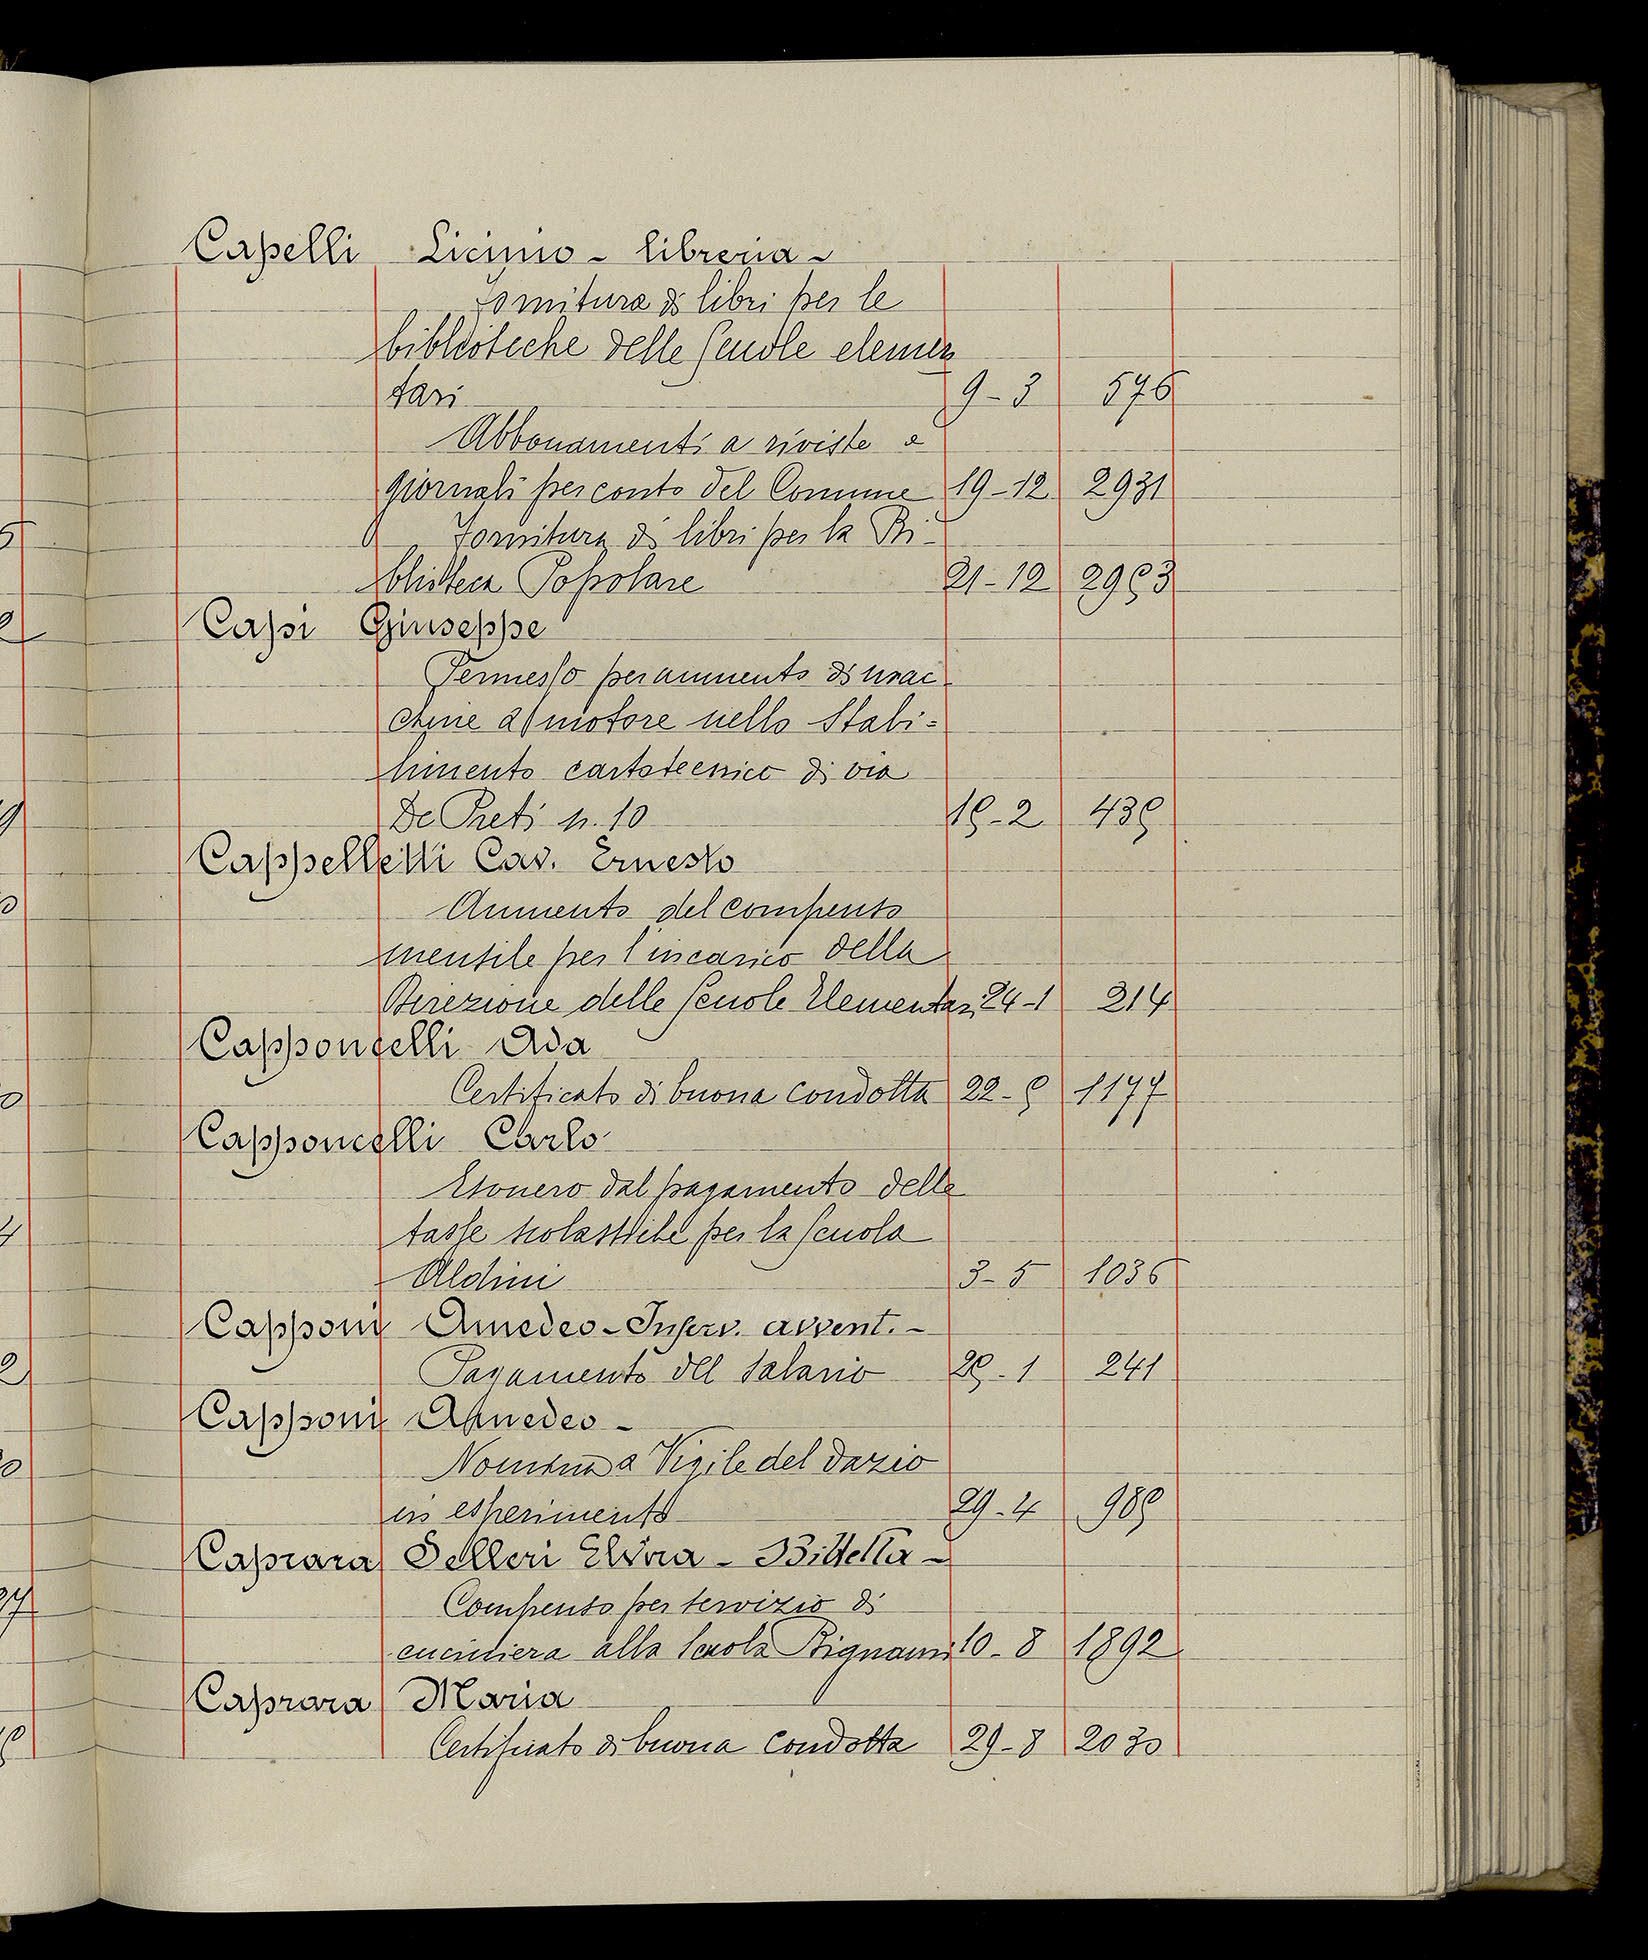 Capelli Licinio - libreria -
Fornitura di libri per le
biblioteche delle Scuole elemen
tari 9-3 576
Abbonamenti a riviste e
giornali per conto del Comune 19-12 2931
Fornitura di libri per la Bi-
blioteca Popolare 21-12 2953
Capi Giuseppe
Permesso per aumento di mac
chine a motore nello Stabi=
limento cartotecnico di via
De Preti n. 10 15-2 435
Cappelletti Cav. Ernesto
Aumento del compenso
mensile per l'incarico della
Direzione delle Scuole Elementari 24-1 214
Capponcelli Ada
Certificato di buona condotta 22-5 1177
Capponcelli Carlo
Esonero dal pagamento delle
tasse scolastiche per la Scuola
Aldini 3-5 1036
Capponi Amedeo - Inserv. avvent. -
Pagamento del salario 25-1 241
Capponi Amedeo -
Nomina a Vigile del Dazio
in esperimento 29-4 985
Caprara Selleri Elvira - Bidella -
Compenso per servizio di
cuciniera alla Scuola Bignami 10-8 1892
Caprara Maria
Certificato di buona condotta 29-8 2030